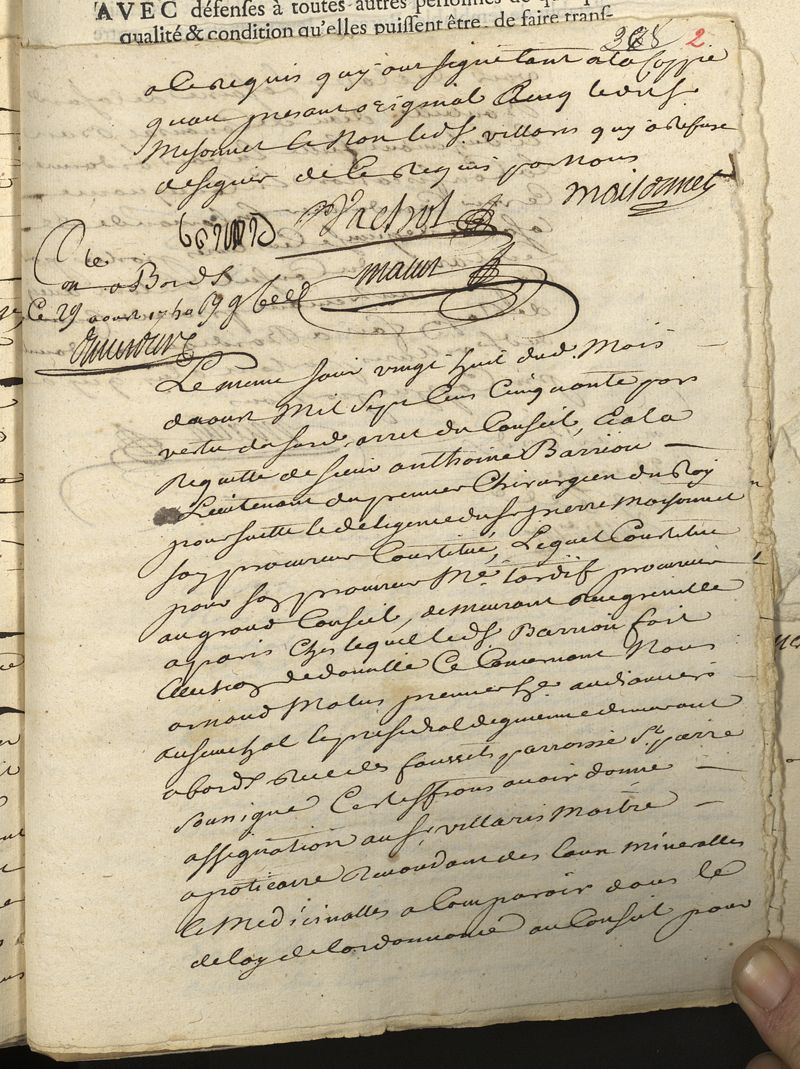 AVEC défenses à toutes autres personnes de
qualité & condition qu'elles puissent être, de faire trans-
2
a ce requis quy ont signé tant a la Coppie
quau present original avecq ledit sr
Mesonnet Ce Non led. sr. villaris quy a refuse
de signer de Ce Requis par Nous
maisonnet
Vachot
malus
Cle
on a Bord x
Ce 29 aoust 1750
Le meme jour vingt huit dud. Mois
daoust Mil Sept Cens Cinquante par
vertu dususd. arret du Conseil, Et a la
Requette de sieur anthoine Barriou
Lieutenant du premier Chirurgien du Roy
poursuitte et deligence du sr pierre Maisonnet
son procureur Constitué, Lequel Constitue
pour son procureur Me tardif procureur
au grand Conseil, demeurant Rue grenelle
a paris Chez lequel led. sr Barriou fait
Election de domicille Ce Concernant Nous
arnaud Malus premier hr. audiancier
au senechal et presidial de guienne demeurant
a bords Rue des faussets parroisse St pierre
soussigné Certiffions avoir donné
assignation au sr. villaris Maitre
apoticaire Revandant des Eaux Mineralles
et Medicinalles a Comparoir dans le
delay de lordonnance au Conseil pour